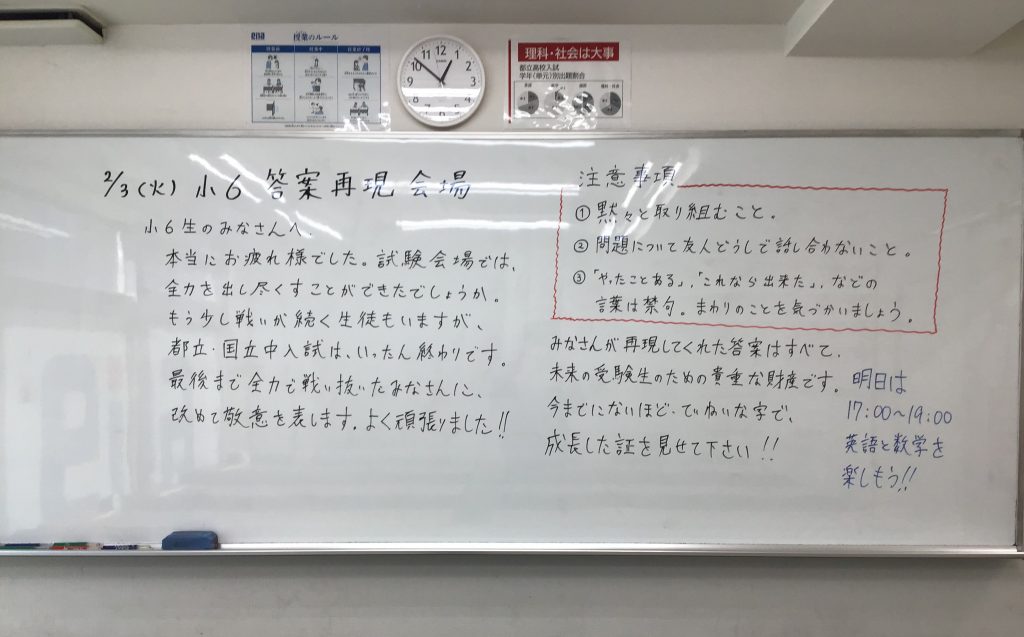 ena 授業のルール
理科・社会は大事
都立高校入試
学年(単元)別出題割合
12
1
2
3
4
5
6
7
8
9
10
11
2/3(火) 小6 答案再現会場
小6生のみなさんへ.
本当にお疲れ様でした。試験会場では、
全力を出し尽くすことができたでしょうか。
もう少し戦いが続く生徒もいますが、
都立・国立中入試は、いったん終わりです。
最後まで全力で戦い抜いたみなさんに、
改めて敬意を表します。よく頑張りました!!
注意事項
① 黙々と取り組むこと。
② 問題について友人どうしで話し合わないこと。
③ 「やったことある」,「これなら出来た」,などの
言葉は禁句。まわりのことを気づかいましょう。
みなさんが再現してくれた答案はすべて、
未来の受験生のための貴重な財産です。
今までにないほど、ていねいな字で、
成長した証を見せて下さい!!
明日は
17:00~19:00
英語と数学を
楽しもう!!